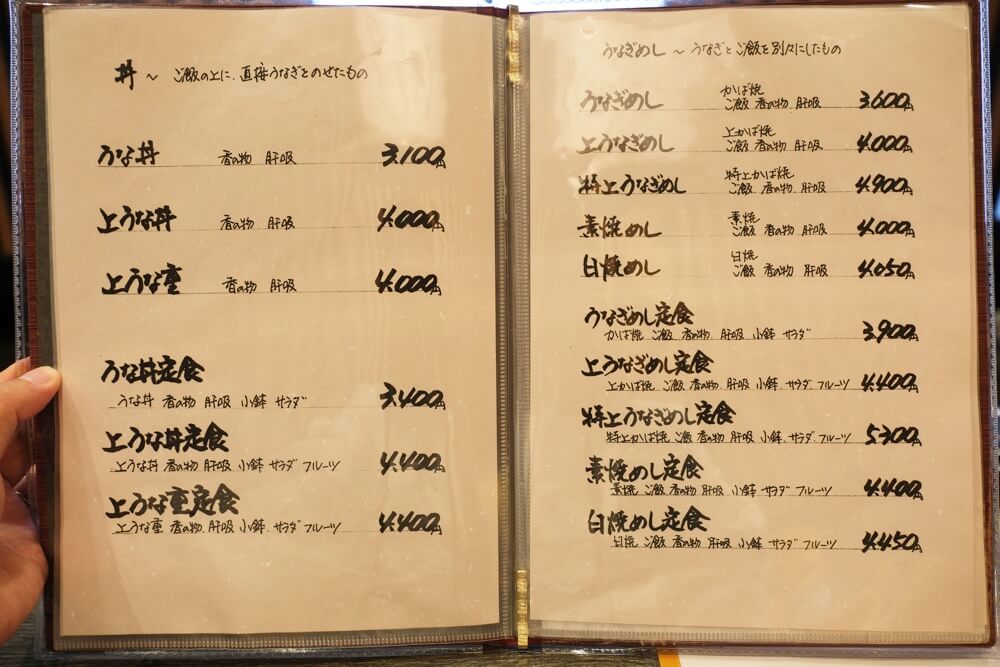 丼 〜 ご飯の上に、直接うなぎをのせたもの
うな丼 香の物 肝吸 3.100円
上うな丼 香の物 肝吸 4.000円
上うな重 香の物 肝吸 4.000円
うな丼定食
うな丼 香の物 肝吸 小鉢 サラダ 3.400円
上うな丼定食
上うな丼 香の物 肝吸 小鉢 サラダ フルーツ 4.400円
上うな重定食
上うな重 香の物 肝吸 小鉢 サラダ フルーツ 4.400円
うなぎめし 〜 うなぎとご飯を別々にしたもの
かば焼
うなぎめし ご飯 香の物 肝吸 3.600円
上かば焼
上うなぎめし ご飯 香の物 肝吸 4.000円
特上かば焼
特上うなぎめし ご飯 香の物 肝吸 4.900円
素焼
素焼めし ご飯 香の物 肝吸 4.000円
白焼
白焼めし ご飯 香の物 肝吸 4.050円
うなぎめし定食
かば焼 ご飯 香の物 肝吸 小鉢 サラダ 3.900円
上うなぎめし定食
上かば焼 ご飯 香の物 肝吸 小鉢 サラダ フルーツ 4.400円
特上うなぎめし定食
特上かば焼 ご飯 香の物 肝吸 小鉢 サラダ フルーツ 5300円
素焼めし定食
素焼 ご飯 香の物 肝吸 小鉢 サラダ フルーツ 4.400円
白焼めし定食
白焼 ご飯 香の物 肝吸 小鉢 サラダ フルーツ 4.450円